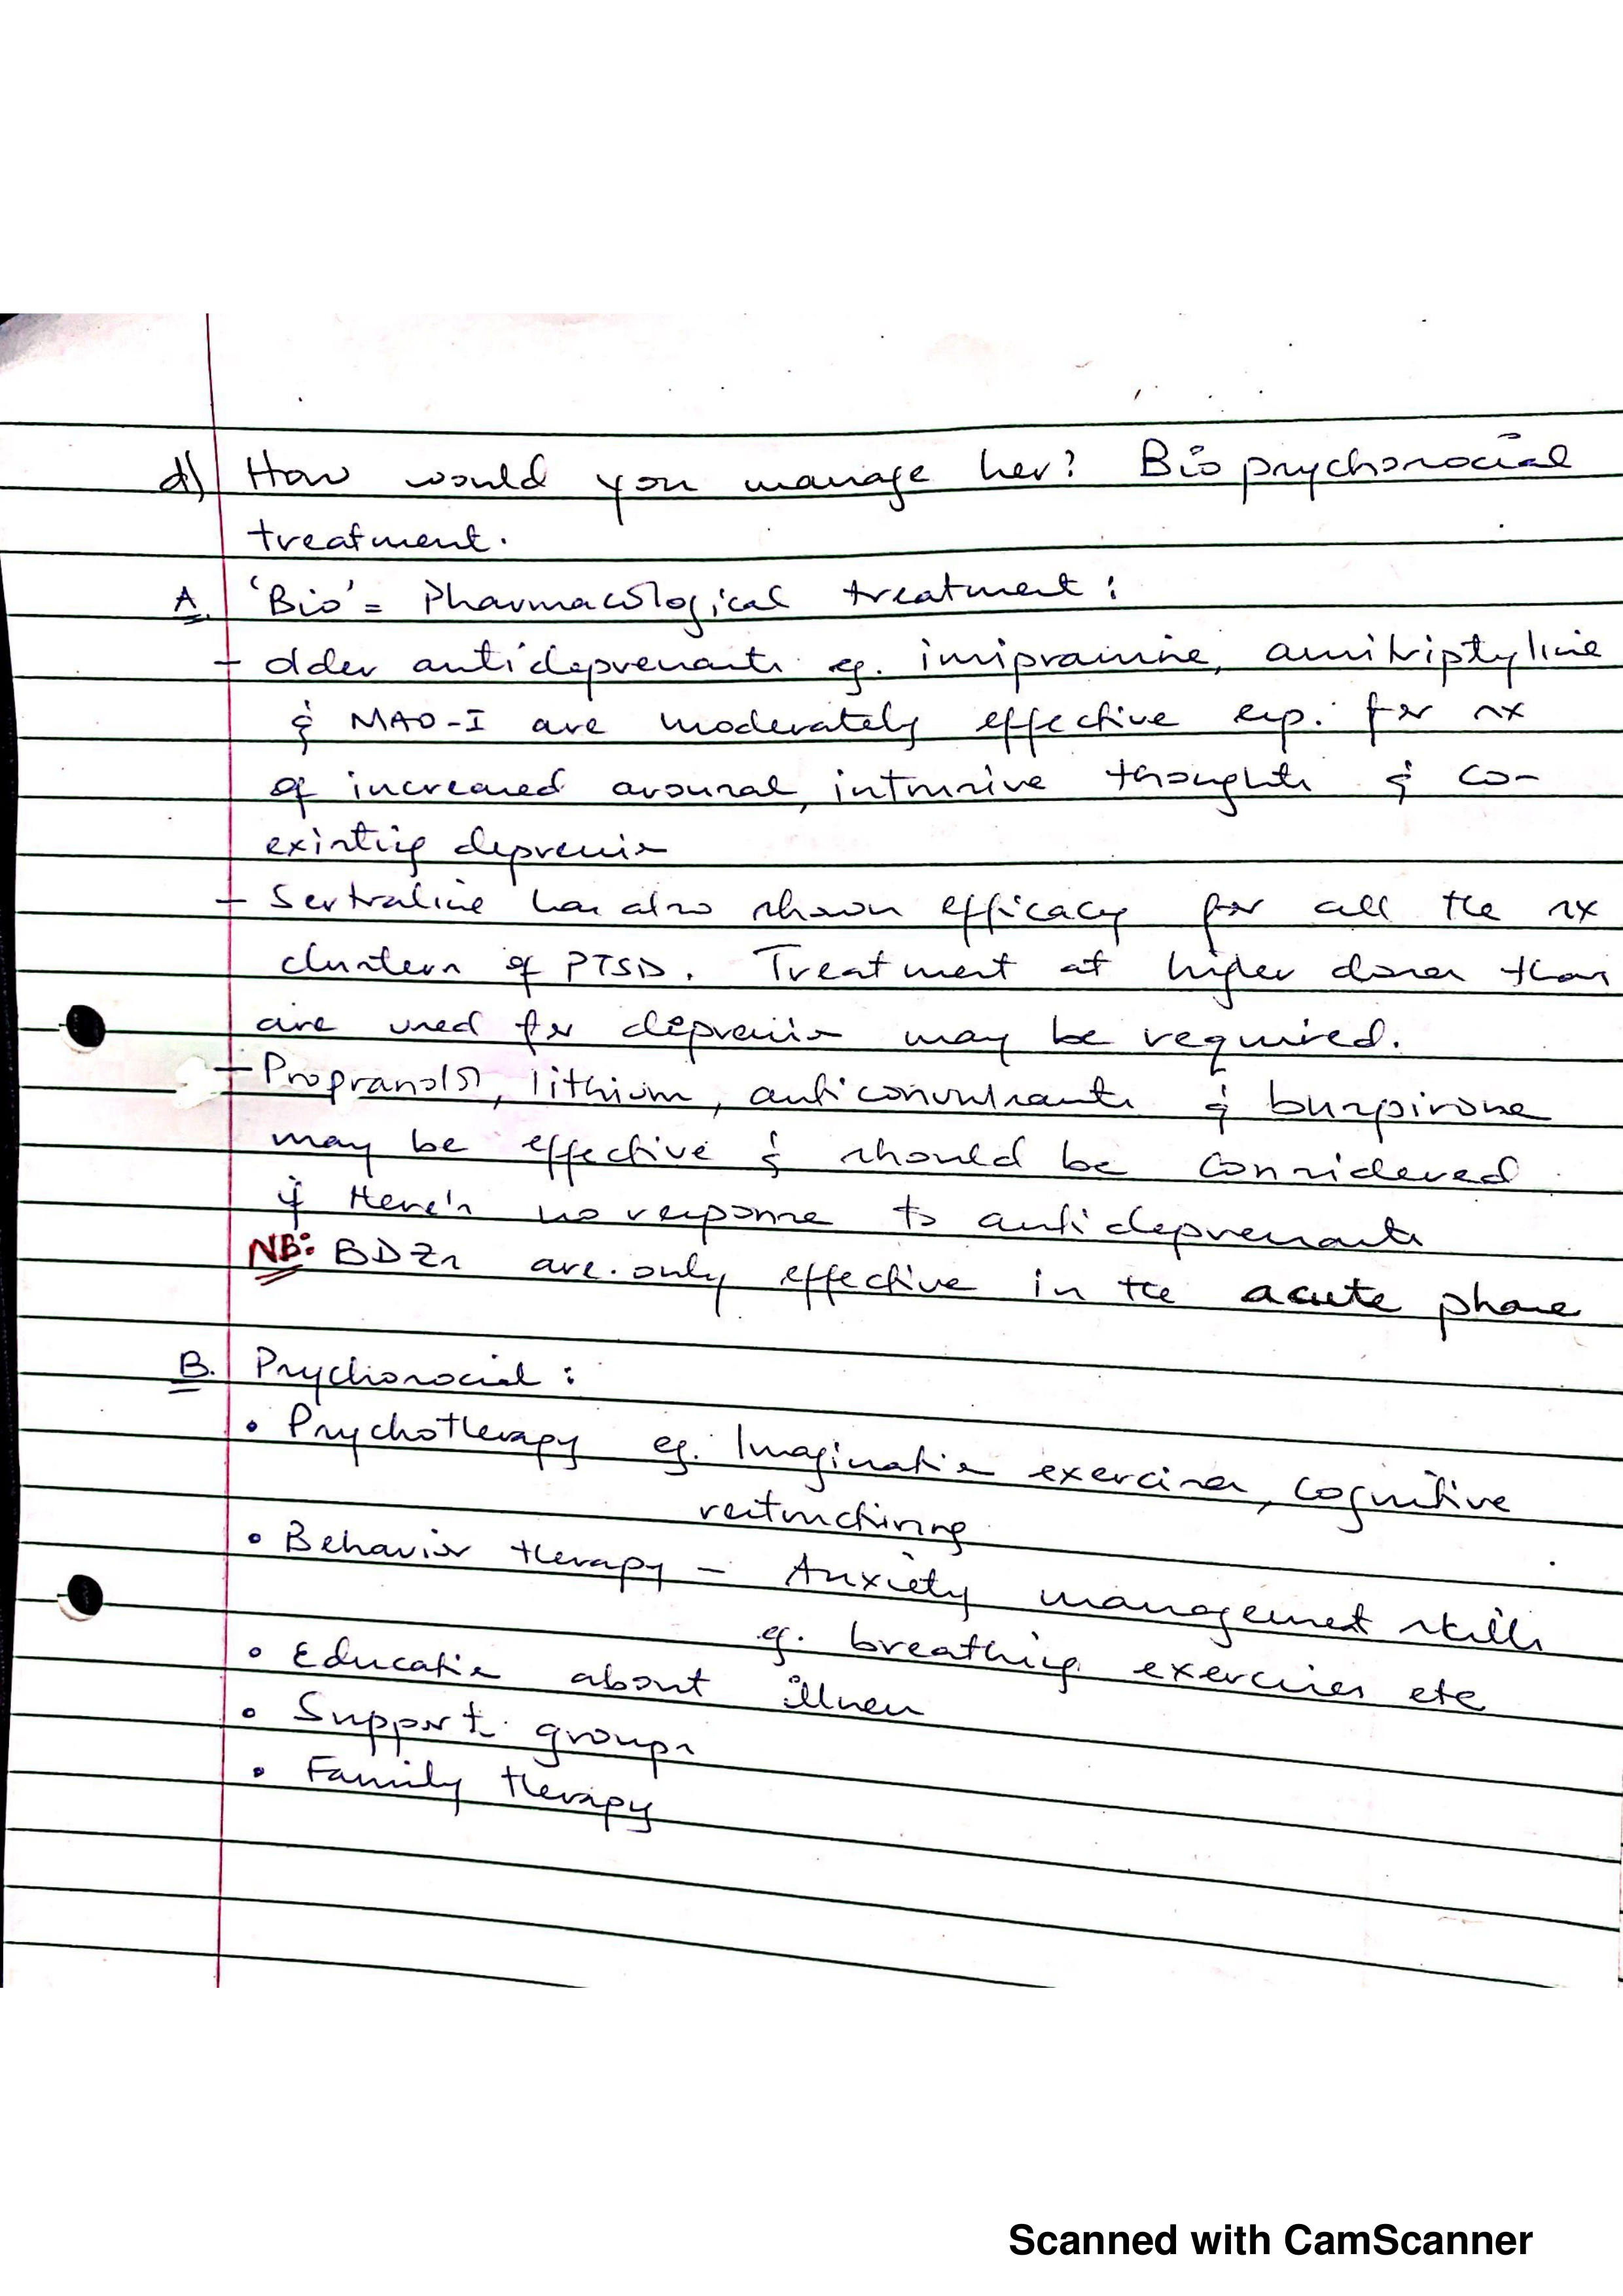 d) How would you manage her? Biopsychosocial
treatment.
A. 'Bio' = Pharmacological treatment:
- older antidepressants eg. imipramine, amitriptyline
& MAO-I are moderately effective esp. for sx
of increased arousal, intrusive thoughts & co-
existing depression
- Sertraline has also shown efficacy for all the sx
clusters of PTSD. Treatment at higher doses than
are used for depression may be required.
- Propranolol, lithium, anticonvulsants & buspirone
may be effective & should be considered
if there's no response to antidepressants
NB: BDZs are only effective in the acute phase
B. Psychosocial:
• Psychotherapy eg. Imagination exercises, cognitive
restructuring
• Behavior therapy - Anxiety management skills
eg. breathing exercises etc
• Education about illness
• Support groups
• Family therapy
Scanned with CamScanner